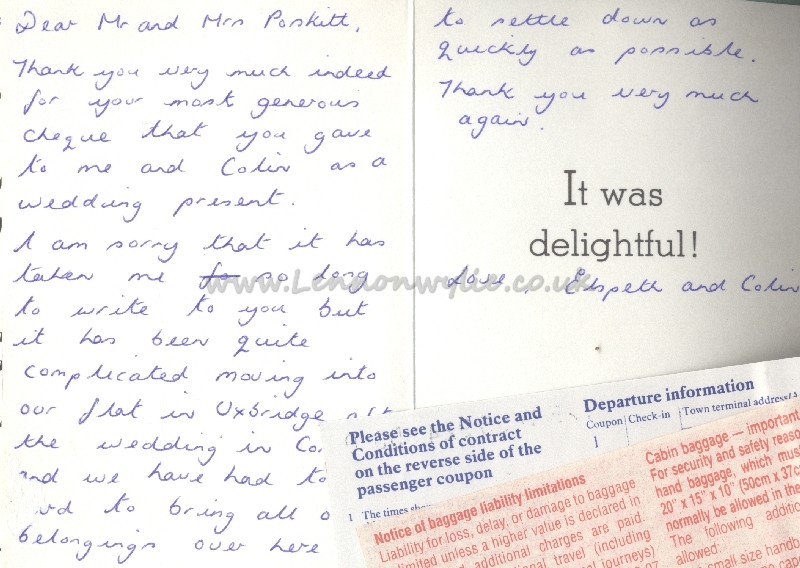 Dear Mr and Mrs Poskitt,
Thank you very much indeed
for your most generous
cheque that you gave
to me and Colin as a
wedding present.
I am sorry that it has
taken me so long
to write to you but
it has been quite
complicated moving into
our flat in Uxbridge
the wedding in
and we have had to
to bring all
belongings over here
to settle down as
quickly as possible.
Thank you very much
again.
It was
delightful!
Love, Elspeth and Colin
www.Lendonwylie.co.uk
Please see the Notice and
Conditions of contract
on the reverse side of the
passenger coupon
1 The times
Departure information
Coupon Check-in Town terminal address/
1
Notice of baggage liability limitations
Liability for loss, delay, or damage to baggage
limited unless a higher value is declared in
additional charges are paid.
travel (including
journeys)
Cabin baggage — important
For security and safety reaso
hand baggage, which mus
20" x 15" x 10" (50cm x 37c
normally be allowed in the
The following additio
allowed:
small size handb